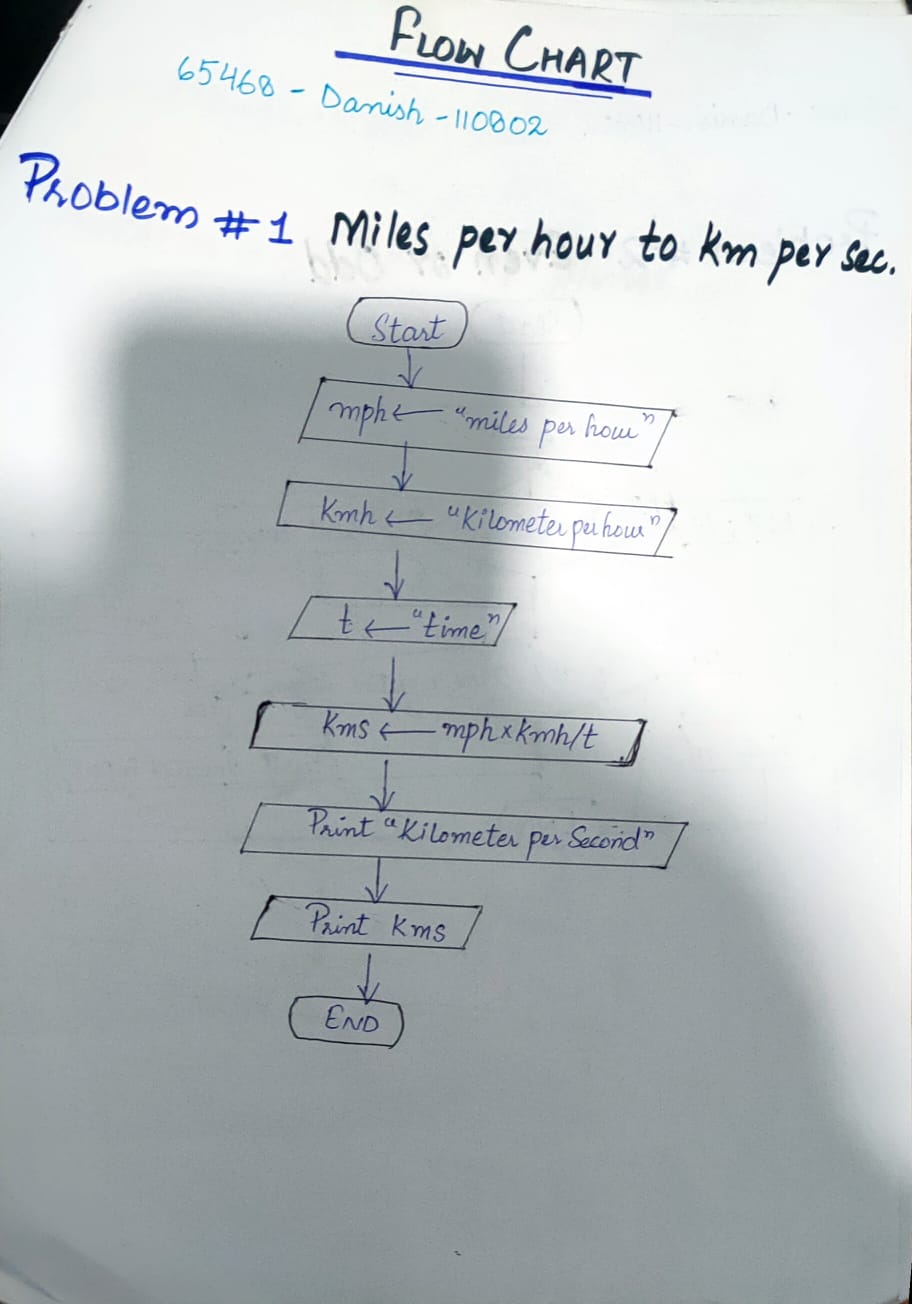 FLOW CHART
65468 - Danish - 110802
Problem #1 Miles per hour to Km per sec.
Start
mph ← "miles per hour"
Kmh ← "Kilometer per hour"
t ← "time"
Kms ← mph x kmh/t
Print "Kilometer per Second"
Print Kms
END